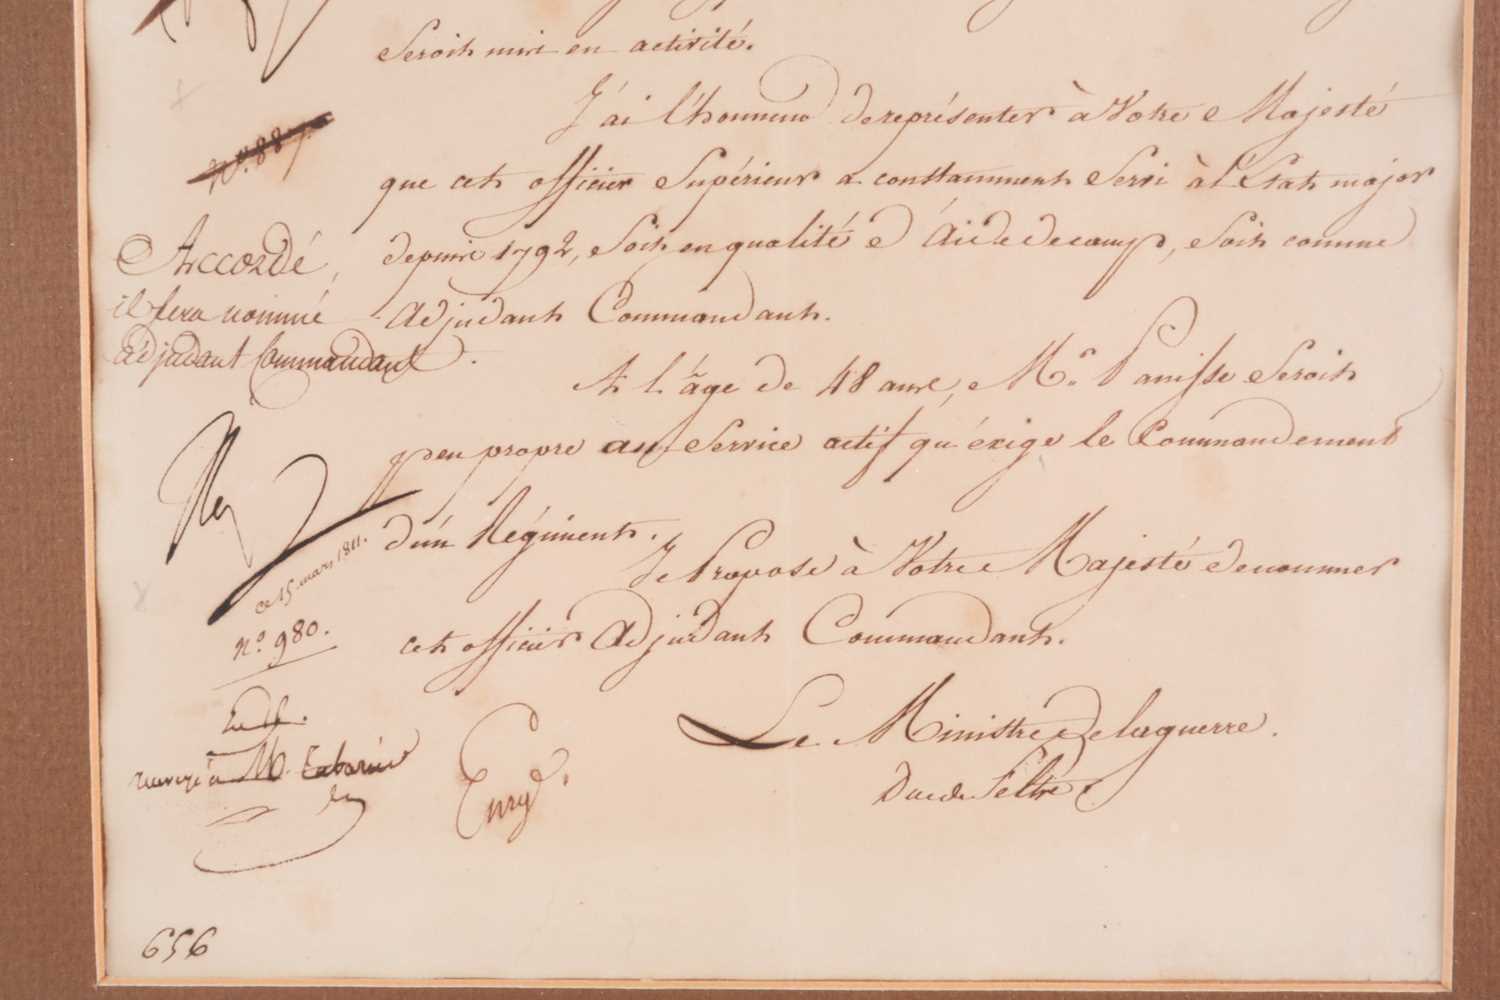 Seroit mis en activité.
J'ai l'honneur de représenter à Votre Majesté
que cet officier Supérieur a constamment Servi à l'État major
depuis 1792, Soit en qualité d'Aide de camp, Soit comme
Adjudant Commandant.
A l'âge de 48 ans, Mr. Panisse Seroit
peu propre au Service actif qu'éxige le Commandement
d'un Régiment.
Je Propose à Votre Majesté de nommer
cet officier Adjudant Commandant.
Le Ministre de la guerre.
Duc de Feltre
No. 887.
Accordé,
il sera nommé
adjudant Commandant.
ce 15 mars 1811.
No. 980.
renvoyé à M.
656